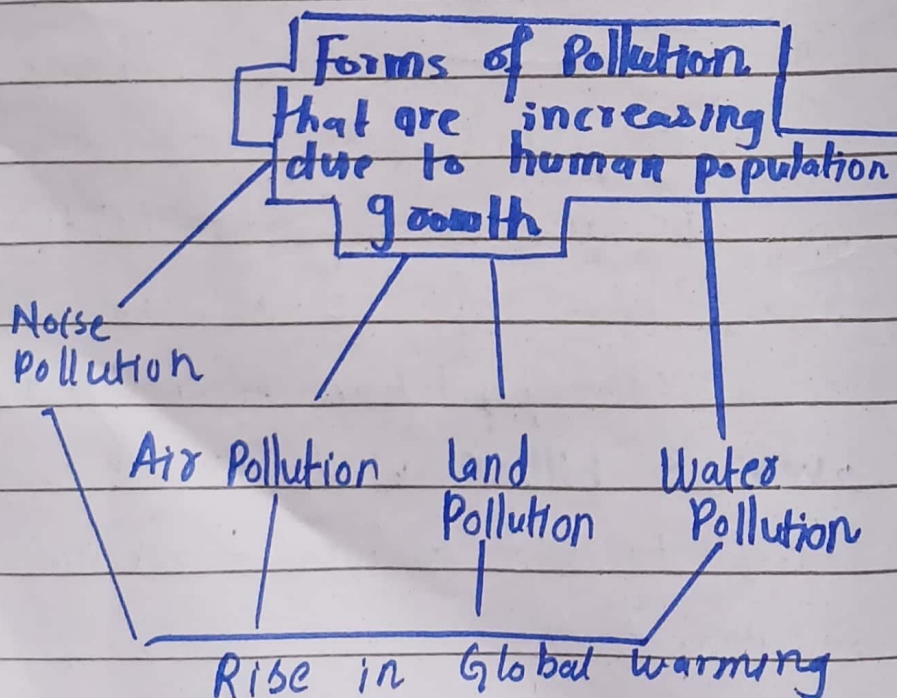 Forms of Pollution
that are increasing
due to human population
growth
Noise
Pollution
Air Pollution
Land
Pollution
Water
Pollution
Rise in Global Warming